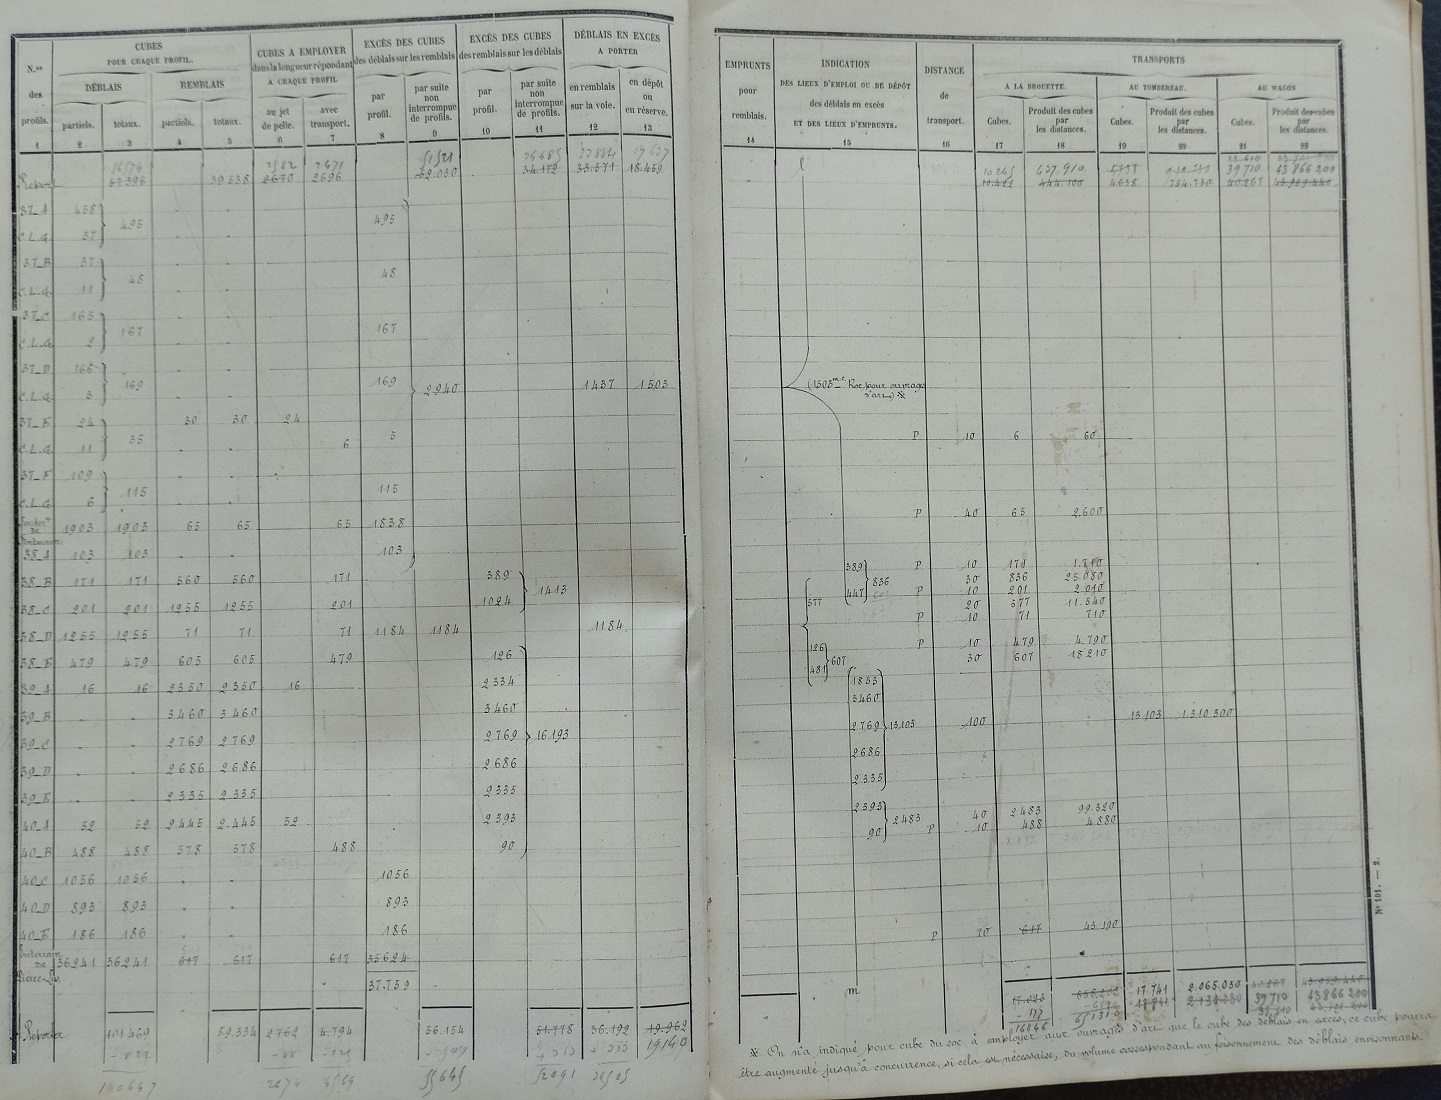 N.os des profils.
CUBES POUR CHAQUE PROFIL.
DÉBLAIS
REMBLAIS
partiels. totaux. partiels. totaux.
CUBES A EMPLOYER dans la longueur répondant A CHAQUE PROFIL
au jet de pelle. avec transport.
EXCÈS DES CUBES des déblais sur les remblais
par profil. par suite non interrompue de profils.
EXCÈS DES CUBES des remblais sur les déblais
par profil. par suite non interrompue de profils.
DÉBLAIS EN EXCÈS A PORTER
en remblais sur la voie. en dépôt ou en réserve.
1 2 3 4 5 6 7 8 9 10 11 12 13
Report 59.538 2670 2696 52.030 34.172 33.571 18.459
37_A 458 495 495
C.L.G. 37
37_B 37 48 48
C.L.G. 11
37_C 165 167 167
C.L.G. 2
37_D 166 169 169 2940 1437 1503
C.L.G. 3
37_E 24 35 30 30 24 5
C.L.G. 11 6
37_F 109 115 115
C.L.G. 6
1903 1903 65 65 65 1838
38_A 103 103 103
38_B 171 171 560 560 171 389 1413
38_C 201 201 1255 1255 201 1024
38_D 1255 1255 71 71 71 1184 1184 1184
38_E 479 479 605 605 479 126
39_A 16 16 2350 2350 16 2334
39_B 3460 3460 3460
39_C 2769 2769 2769 16193
39_D 2686 2686 2686
39_E 2335 2335 2335
40_A 52 52 2445 2.445 52 2393
40_B 488 488 578 578 488 90
40_C 1056 1056 1056
40_D 893 893 893
40_E 186 186 186
Souterrain de Pierre- 36241 36241 617 617 617 35624
37.759
Reporter 101.469 59.334 2762 4.794 56.154 51.778 36.192 19.962
19140
EMPRUNTS pour remblais.
INDICATION DES LIEUX D'EMPLOI OU DE DÉPÔT des déblais en excès ET DES LIEUX D'EMPRUNTS.
DISTANCE de transport.
TRANSPORTS
A LA BROUETTE. AU TOMBEREAU. AU WAGON
Cubes. Produit des cubes par les distances. Cubes. Produit des cubes par les distances. Cubes. Produit des cubes par les distances.
14 15 16 17 18 19 20 21 22
10.245 437.910 39710 13 866 200
10.422 444.100 4638 754.730 40.267
(1503 m.c. Roc pour ouvrages d'art) ※
P 10 6 60
P 40 65 2.600
389 P 10 171 1.710
836 30 836 25.080
447 P 10 201 2.010
577 20 577 11.540
P 10 71 710
126 P 10 479 4.790
481 607 30 607 18210
1853
3460
2769 13103 100 13.103 1.310.300
2686
2335
2393 2483 40 2483 99.320
90 P 10 488 4.880
P 70 617 43.190
m
17.741 2.065.030
39710 13866200
16846
※ On n'a indiqué pour cube du roc à employer aux ouvrages d'art que le cube des déblais en excès, ce cube pourra
être augmenté jusqu'à concurrence, si cela est nécessaire, du volume correspondant au foisonnement des déblais environnants.
N° 101. — 2.